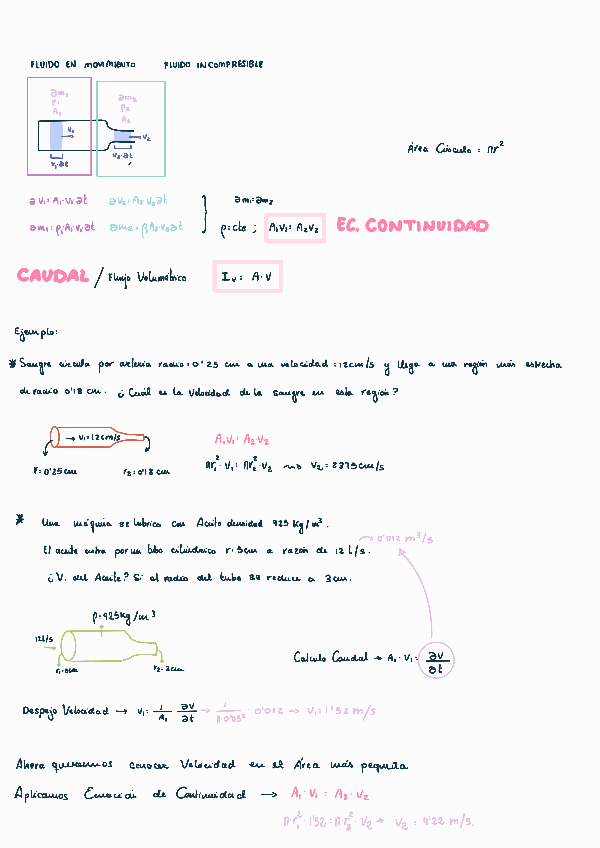 FLUIDO EN MOVIMIENTO FLUIDO INCOMPRESIBLE
∂m₁ ρ₁ A₁
∂m₂ ρ₂ A₂
V₁ V₂
V₁·∂t V₂·∂t
Área Círculo = πr²
∂V₁= A₁·V₁∂t ∂V₂= A₂·V₂∂t
∂m₁= ρ₁A₁·V₁∂t ∂m₂= ρ₂A₂·V₂∂t
∂m₁=∂m₂
ρ=cte ; A₁V₁= A₂V₂ EC. CONTINUIDAD
CAUDAL / Flujo Volumétrico Iᵥ= A·V
Ejemplo:
* Sangre circula por arteria radio=0'25 cm a una velocidad =12cm/s y llega a una región más estrecha
de radio 0'18 cm. ¿Cuál es la Velocidad de la sangre en esta región?
→ V₁=12cm/s
r=0'25cm r₂=0'18cm
A₁V₁= A₂·V₂
πr₁²·V₁= πr₂²·V₂ → V₂= 23'15cm/s
* Una máquina se lubrica con Aceite densidad 925 kg/m³.
El aceite entra por un tubo cilíndrico r=5cm a razón de 12 l/s. → 0'012 m³/s
¿V. del Aceite? Si el radio del tubo se reduce a 3cm.
ρ=925kg/m³
12l/s
r₁=5cm r₂=3cm
Calculo Caudal → A₁·V₁= ∂V/∂t
Despejo Velocidad → V₁= 1/A₁ ∂V/∂t → 1/π·0'05² · 0'012 → V₁=1'52 m/s
Ahora queremos conocer Velocidad en el Área más pequeña
Aplicamos Ecuación de Continuidad → A₁·V₁ = A₂·V₂
π·r₁²·1'52=π·r₂²·V₂ → V₂ = 4'22 m/s.